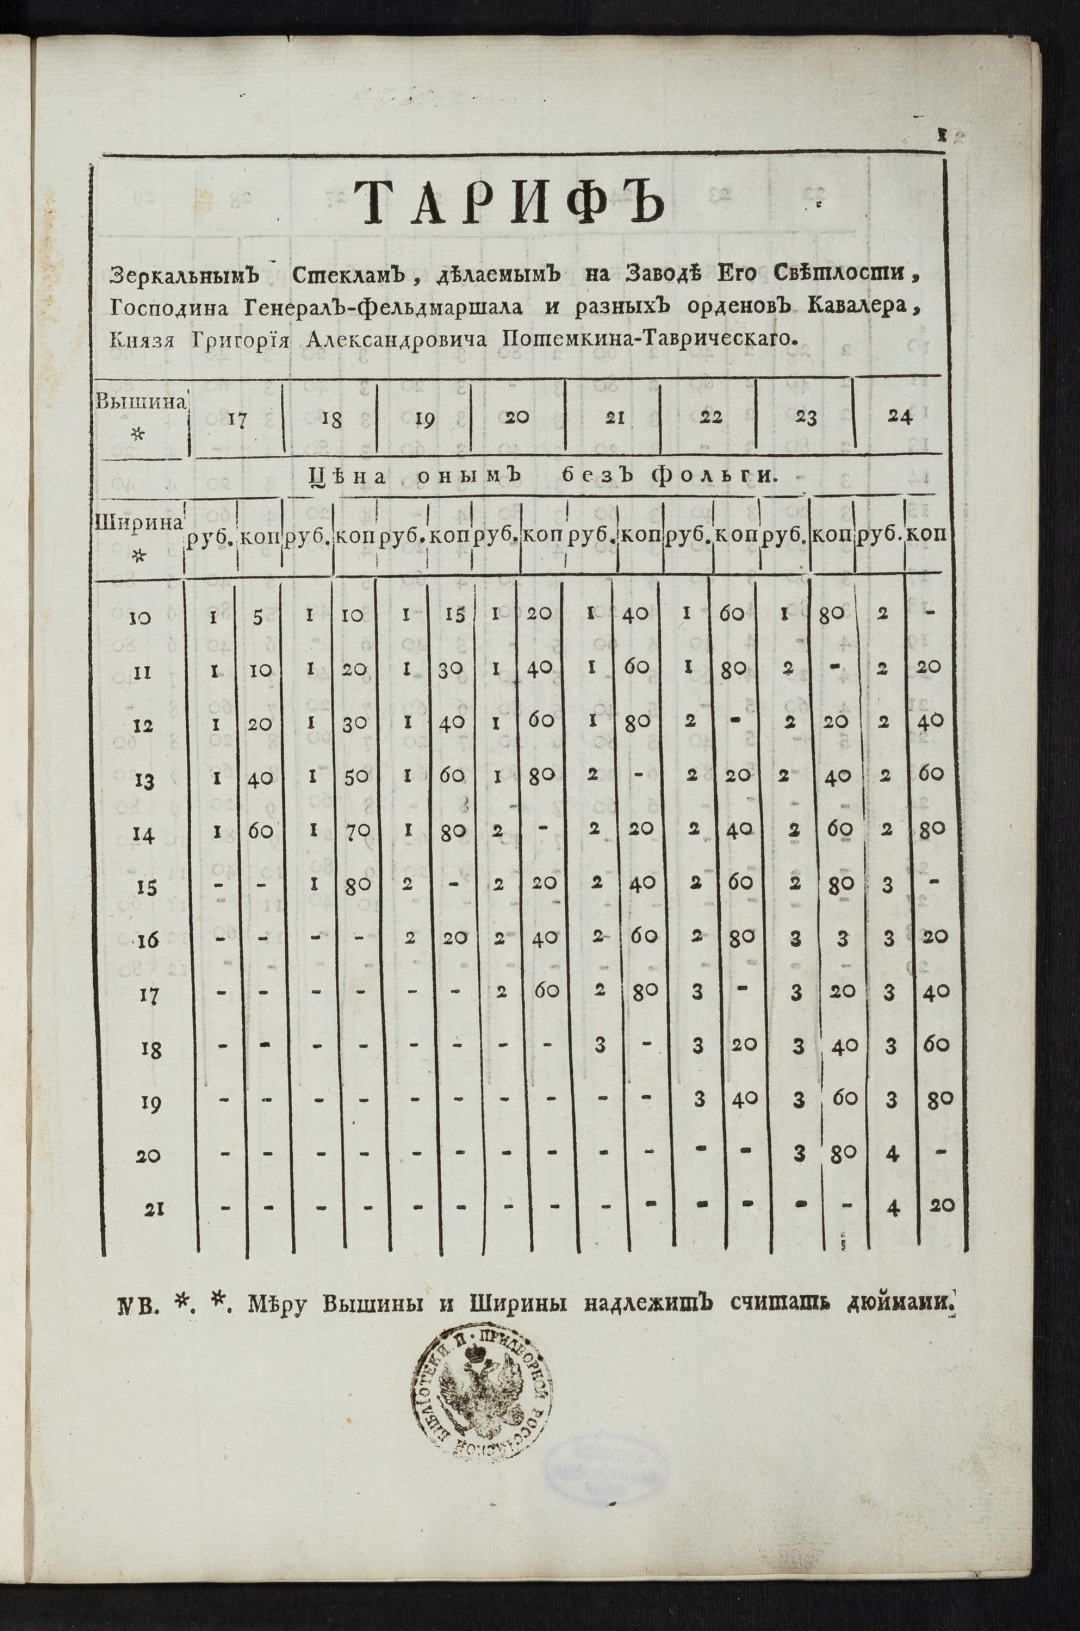 1
ТАРИФЪ
Зеркальнымъ Стекламъ, дѣлаемымъ на Заводѣ Его Свѣтлости,
Господина Генералъ-фельдмаршала и разныхъ орденовъ Кавалера,
Князя Григорїя Александровича Потемкина-Таврическаго.
Вышина * 17 18 19 20 21 22 23 24
Цѣна онымъ безъ фольги.
Ширина * руб. коп руб. коп руб. коп руб. коп руб. коп руб. коп руб. коп руб. коп
10 1 5 1 10 1 15 1 20 1 40 1 60 1 80 2 -
11 1 10 1 20 1 30 1 40 1 60 1 80 2 - 2 20
12 1 20 1 30 1 40 1 60 1 80 2 - 2 20 2 40
13 1 40 1 50 1 60 1 80 2 - 2 20 2 40 2 60
14 1 60 1 70 1 80 2 - 2 20 2 40 2 60 2 80
15 - - 1 80 2 - 2 20 2 40 2 60 2 80 3 -
16 - - - - 2 20 2 40 2 60 2 80 3 3 3 20
17 - - - - - - 2 60 2 80 3 - 3 20 3 40
18 - - - - - - - - 3 - 3 20 3 40 3 60
19 - - - - - - - - - - 3 40 3 60 3 80
20 - - - - - - - - - - - - 3 80 4 -
21 - - - - - - - - - - - - - - 4 20
NB. *. *. Мѣру Вышины и Ширины надлежитъ считать дюймами.
ПРИДВОРНОЙ РОССІЙСКОЙ БИБЛІОТЕКИ